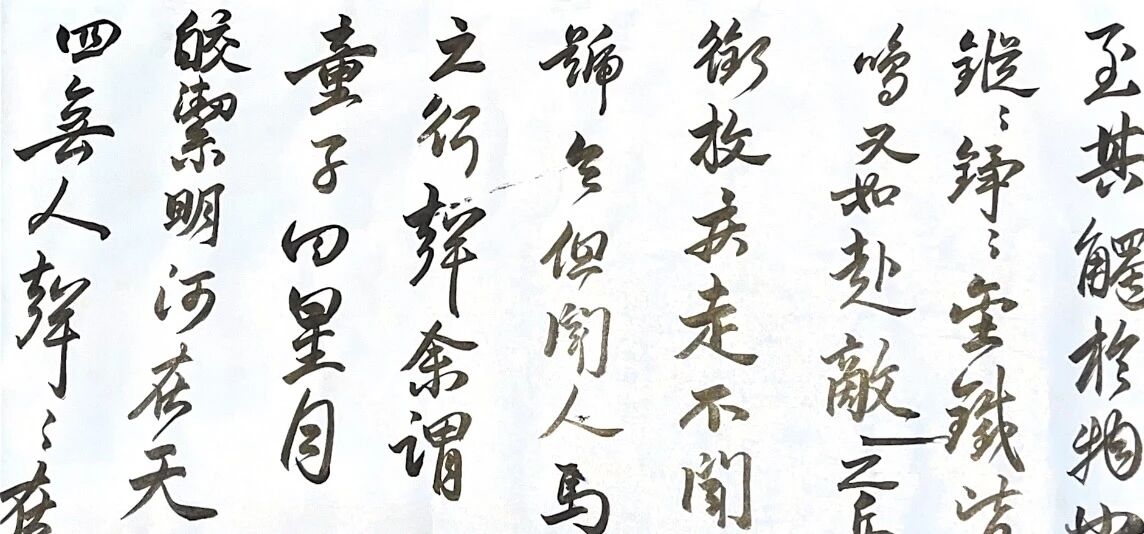 至其觸於物也
鏦〻錚〻金鐵皆
鳴又如赴敵之兵
銜枚疾走不聞
號令但聞人馬
之行聲余謂
童子曰星月
皎潔明河在天
四無人聲〻在